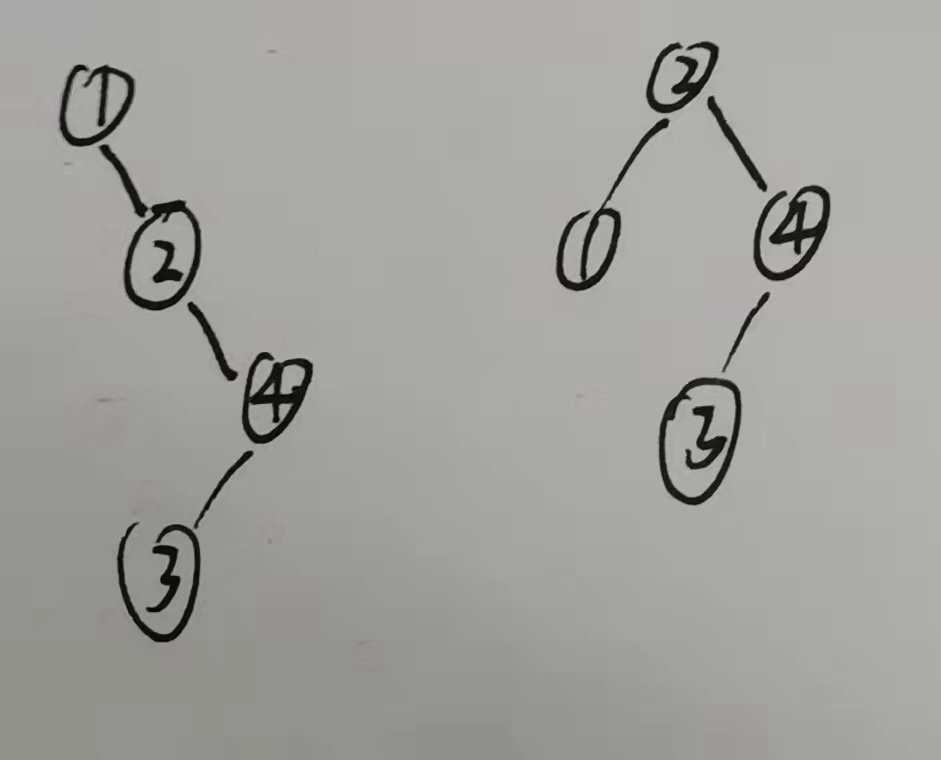 1
2
4
3
2
1
4
3